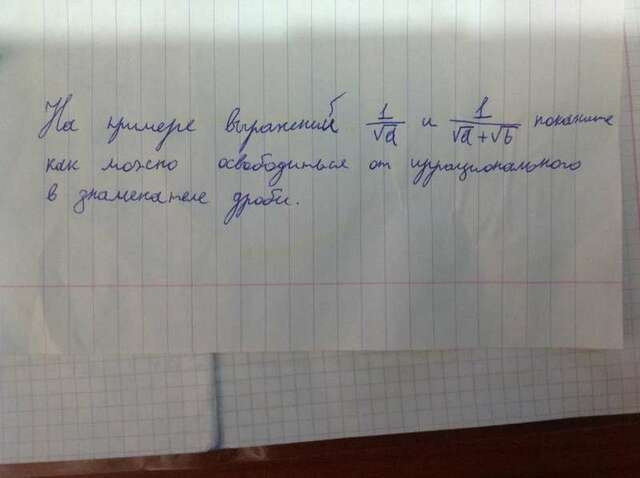 На примере выражений 1/√a и 1/(√a+√b) покажите
как можно освободиться от иррационального
в знаменателе дроби.